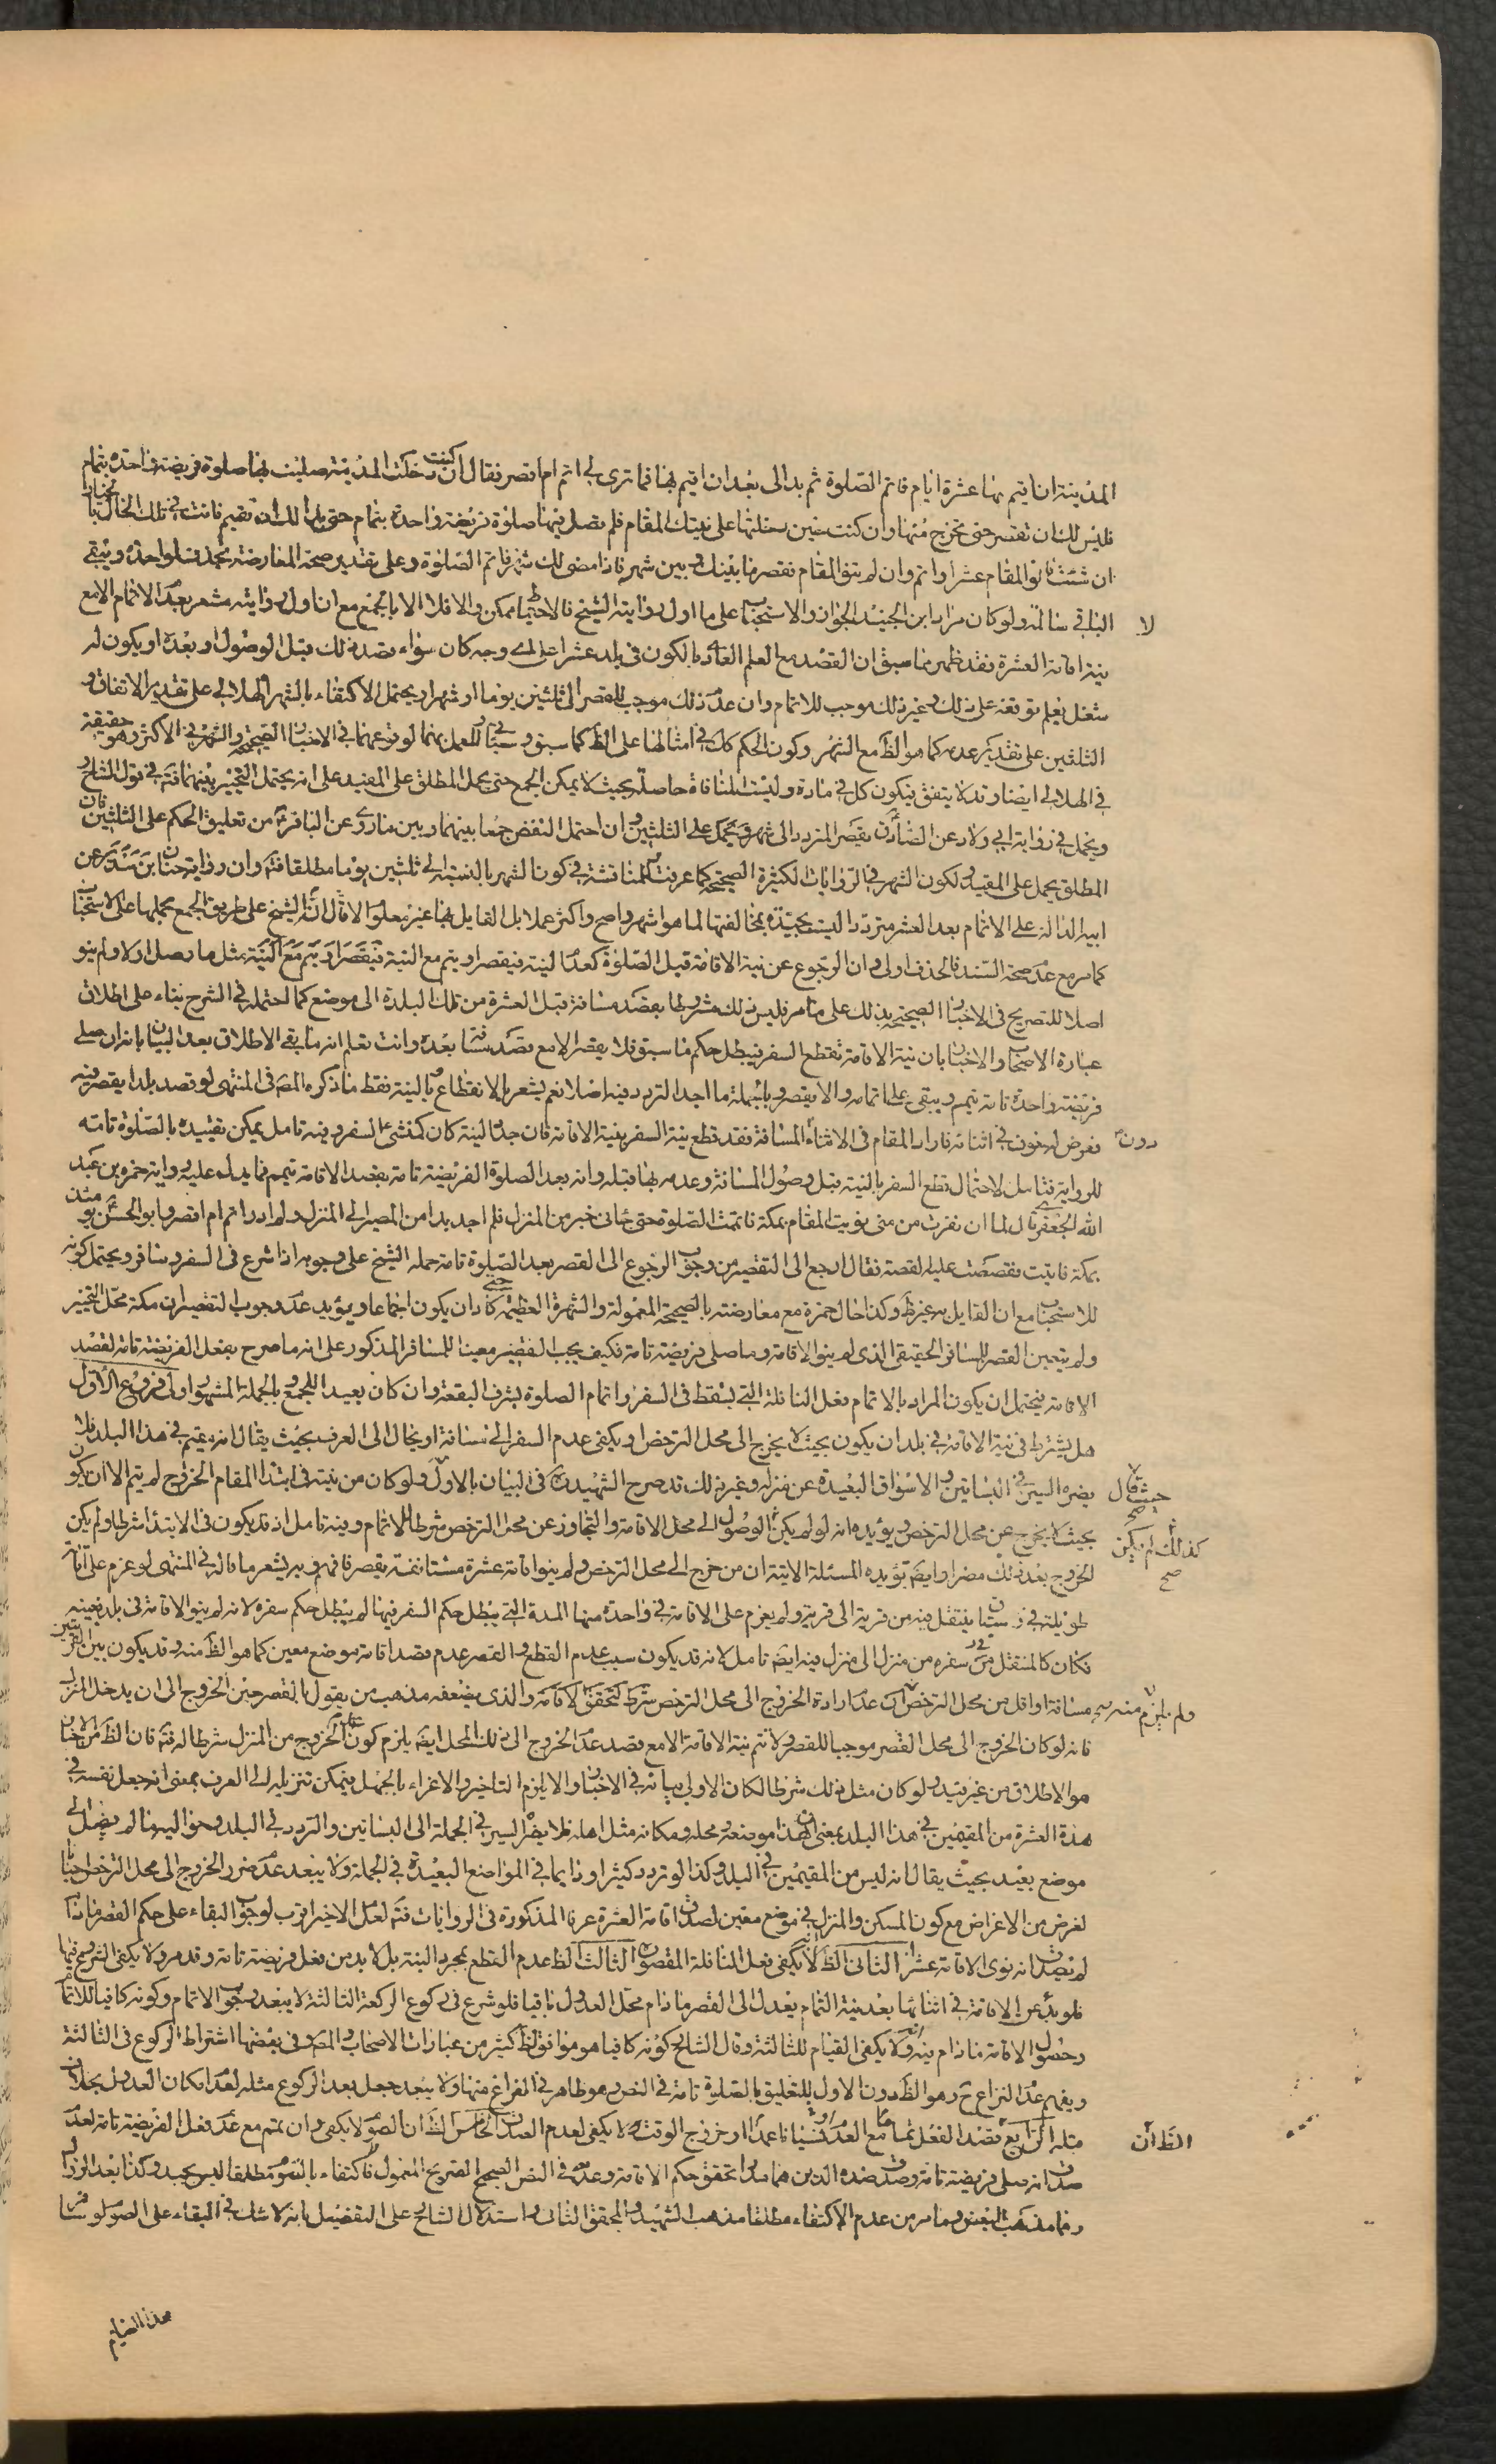 المدينة ان اقيم بها عشرة ايام فاتم الصلوة ثم بدالى بعد ان اقيم بها فما ترى لي اتم ام اقصر فقال ان كنت دخلت المدينة صليت بها صلوة فريضة واحدة بتمام
فليس لك ان تقصر حتى تخرج منها وان كنت حين دخلتها على نيتك المقام فلم تصل فيها صلوة فريضة واحدة بتمام حتى بدا لك ان لا تقيم فانت في تلك الحال بالخيار
ان شئت فانو المقام عشرا واتم وان لم تنو المقام فقصر ما بينك وبين شهر فاذا مضى لك شهر فاتم الصلوة وعلى تقدير صحة المعارضة بحذف الواحدة ويبقى
الباقي سالمة ولو كان مراد ابن الجنيد الجواز والاستحباب على ما اول رواية الشيخ فالاحتياط ممكن والا فلا الا بالجمع مع ان اول رواية مشعر بعدم الاتمام الا مع
لا
نية اقامة العشرة فقد ظهر مما سبق ان القصد مع العلم العادي بالكون في بلد عشرا على اي وجه كان سواء قصد ذلك قبل الوصول او بعده او يكون له
شغل يعلم توقفه على ذلك وغير ذلك موجب للاتمام وان عدم ذلك موجب للقصر الى ثلثين يوما او شهرا ويحتمل الاكتفاء بالشهر الهلالي على تقدير الاتفاق و
الثلثين على تقدير عدمه كما هو الظ مع الشهر وكون الحكم كك في امثالها على الظ كما سبق وسيجئ للعمل بهما لوقوعهما في الاخبار الصحيحة والشهر في الاكثر وهو حقيقة
في الهلالي ايضا وقد لا يتفق فيكون كل في مادة وليست المنافاة حاصلة بحيث لا يمكن الجمع حتى يحمل المطلق على المقيد على انه يحتمل التخيير بينهما فت في قول الشارح
ويحمل في رواية ابي ولاد عن الصادق يقصر المتردد الى شهر ويحمل على الثلثين وان احتمل النقض جمعا بينهما وبين ما روى عن الباقر من تعليق الحكم على الثلثين فان
المطلق يحمل على المقيد ولكون الشهر في الروايات الكثيرة الصحيحة كما عرفت للمناقشة في كون الشهر بالنسبة الى ثلثين يوما مطلقا فت وان رواية حنان بن سدير عن
ابيه الدالة على الاتمام بعد العشر مترددا ليست بجيدة بمخالفتها لما هو اشهر واصح واكثر عملا بل القايل بها غير معلوم الا قال ان الشيخ على طريق الجمع بحملها على الاستحباب
كما مر مع عدم صحة السند فالحذف اولى وان الرجوع عن نية الاقامة قبل الصلوة كعدم النية فيقصر ويتم مع النية فيقصر او يتم مع النية بمثل ما وصل اولا ولم ينو
اصلا للتصريح في الاخبار الصحيحة بذلك على ما مر فليس ذلك مشروطا بقصد مسافة قبل العشرة من تلك البلدة الى موضع كما احتمله في الشرح بناء على اطلاق
عبارة الاصحاب والاخبار بان نية الاقامة تقطع السفر فيبطل حكم ما سبق فلا يقصر الا مع قصد مسافة بعده وانت تعلم انه ما بقى الاطلاق بعد البيان بانه ان صلى
فريضة واحدة تامة يتمم ويبقى على اتمامه والا يقصر وبالجملة ما اجد التردد فيه اصلا نعم يشعر بالانقطاع بالنية فقط ما ذكره المص في المنتهى لو قصد بلدا يقصر فيه
فعرض له دون في اثنائه فاراد المقام في الاثناء المسافة فقد قطع نية السفر بنية الاقامة فان جدد النية كان كمنشئ السفر وفيه تامل يمكن تقييده بالصلوة تامة
دون
للرواية فتامل لاحتمال قطع السفر بالنية قبل وصول المسافة وعدمه بها قبله وانه بعد الصلوة الفريضة تامة بقصد الاقامة يتمم فما يدل عليه رواية حمزه بن عبد
الله الجعفري قال لما ان نفرت من منى نويت المقام بمكة فاتممت الصلوة حتى جائنى خبر من المنزل فلم اجد بدا من المصير الى المنزل ولم ادر اتم ام اقصر وابو الحسن يومئذ
بمكة فاتيت فقصصت عليه القصة فقال ارجع الى التقصير من وجوب الرجوع الى القصر بعد الصلوة تامة حمله الشيخ على وجوبه اذا شرع في السفر وسافر ويحتمل كونه
للاستحباب مع ان القايل به غير ظ وكذا حال حمزة مع معارضته بالصحيحة المعمولة والشهرة العظيمة حتى كاد ان يكون اجماعا ويؤيد عدم وجوب التقصير ان مكة محل التخيير
ولم يتعين القصر للمسافر الحقيقى الذى لم ينو الاقامة وما صلى فريضة تامة فكيف يجب القصر معينا للمسافر المذكور على انه ما صرح بفعل الفريضة تامة لقصد
الاقامة فيحتمل ان يكون المراد بالاتمام فعل النافلة التي تسقط في السفر واتمام الصلوة لشرف البقعة وان كان بعيدا للجمع وبالجملة المشهور اولى فروع الاول
هل يشترط في نية الاقامة في بلد ان يكون بحيث لا يخرج الى محل الترخص او يكفى عدم السفر الى مسافة او يحال الى العرف بحيث يقال انه مقيم في هذا البلد فلا
يضره السير في البساتين والاسواق البعيدة عن منزله وغير ذلك قد صرح الشهيد في البيان بالاول ولو كان من نيته في ابتدا المقام الخروج لم يتم الا ان يكون
حيث قال
بحيث لا يخرج عن محل الترخص ويؤيده انه لو لم يكن الوصول الى محل الاقامة والتجاوز عن محل الترخص شرطا للاتمام وفيه تامل اذ قد يكون في الابتدا شرطا ولم يكن
كذلك لم يكن صح
الخروج بعد ذلك مضرا وايضا يؤيده المسئلة الاتية ان من خرج الى محل الترخص ولم ينو اقامة عشرة مستانفة يقصر فافهم وبه يشعر ما قاله في المنتهى لو عزم على اقامة
طويلة في رستاق ينتقل فيه من قرية الى قرية ولم يعزم على الاقامة في واحدة منها المدة التي يبطل حكم السفر فيها لم يبطل حكم سفره لانه لم ينو الاقامة في بلد بعينه
فكان كالمنتقل في سفره من منزل الى منزل فيه ايضا تامل لانه قد يكون سبب عدم القطع والقصر عدم قصد اقامة موضع معين كما هو الظ منه وقد يكون بين القريتين
مسافة او اقل من محل الترخص عدم ارادة الخروج الى محل الترخص شرط لتحقق الاقامة والذى يضعفه مذهب من يقول بالقصر حين الخروج الى ان يدخل المنزل
ولم يلزم منه
فانه لو كان الخروج الى محل القصر موجبا للقصر ولا تتم نية الاقامة الا مع قصد عدم الخروج الى ذلك المحل ايضا يلزم كون عدم الخروج من المنزل شرطا له فت فان الظ من الاخبار
هو الاطلاق من غير قيد ولو كان مثل ذلك شرطا لكان الاولى بيانه في الاخبار والا يلزم التاخير والاغراء بالجهل فيمكن تنزيله الى العرف بمعنى انه جعل نفسه في
هذة العشرة من المقيمين في هذا البلد بمعنى ان هذا موضعه ومحله ومكانه مثل اهله فلا يضر السير في الجملة الى البساتين والتردد في البلد وحواليه ما لم يصل الى
موضع بعيد بحيث يقال انه ليس من المقيمين في البلد وكذا لو تردد كثيرا ودايما في المواضع البعيدة في الجملة ولا يبعد عدم ضرر الخروج الى محل الترخص احيانا
لغرض من الاغراض مع كون المسكن والمنزل في موضع معين لصدق اقامة العشرة عرفا المذكورة في الروايات فت لعل الاخير اقرب لوجوب البقاء على حكم القصر ما دام
لم يصدق انه نوى الاقامة عشرا الثانى الظ انه لا يكفي فعل النافلة المقصورة الثالث الظ عدم القطع بمجرد النية بل لا بد من فعل فريضة تامة وقد مر ولا يكفى الشروع فيها
فلو بدل عن الاقامة في اثنائها بعد نية التمام يعدل الى القصر ما دام محل العدول باقيا فلو شرع في ركوع الركعة الثالثة لا يبعد وجوب الاتمام وكونه كافيا للاتمام
وحصول الاقامة ما دام فيه ولا يكفى القيام للثالثة وقال الشارح كونه كافيا هو موافق لظ كثير من عبارات الاصحاب والمص وفي بعضها اشتراط الركوع في الثالثة
ويفهم عدم النزاع ح وهو الظ دون الاول للتعليق بالصلوة تامة في النص وهو ظاهر في الفراغ منها ولا يبعد جعل بعد الركوع مثله لعدم امكان العدول بخلاف
قبله الرابع قصد الفعل تماما مع العدم نسيانا عمدا او خروج الوقت لا يكفى لعدم الصدق الخامس الظ ان الصوم لا يكفى وان تمم مع عدم فعل الفريضة تامة لعدم
الظ ان
صدق انه صلى فريضة تامة وصدق ضده الذين هما مدار تحقق حكم الاقامة وعدمه في النص الصحيح الصريح المعمول فاكتفاء بالصوم مطلقا ليس بجيد وكذا بعد الزوال
وما مذهب البعض وما مر من عدم الاكتفاء مطلقا مذهب الشهيد والمحقق الثانى واستدلال الشارح على التفصيل بانه لا شك في البقاء على الصوم لو سافر